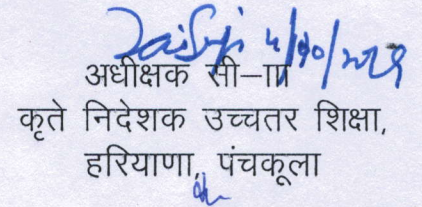 अधीक्षक सी–III
कृते निदेशक उच्चतर शिक्षा,
हरियाणा, पंचकूला